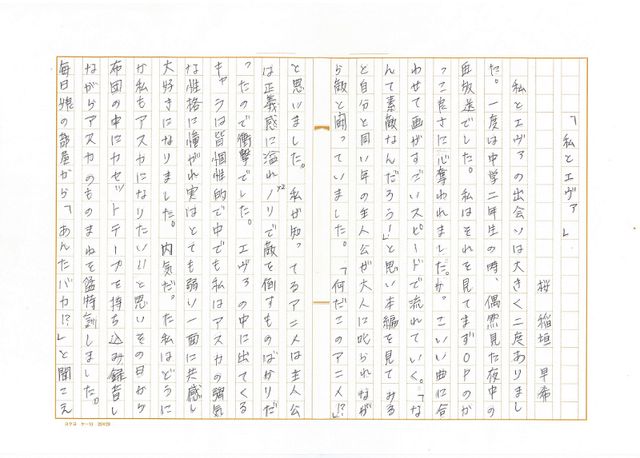 「私とエヴァ」
桜 稲垣 早希
私とエヴァの出会いは大きく二度ありまし
た。一度は中学二年生の時、偶然見た夜中の
再放送でした。私はそれを見てまずOPのか
っこよさに心奪われました。か、こいい曲に合
わせて画がすごいスピードで流れていく。「な
んて素敵なんだろう！」と思い本編を見てみる
と自分と同い年の主人公が大人に叱られなが
ら敵と闘っていました。「何だこのアニメ!?」
と思いました。私が知ってるアニメは主人公
は正義感に溢れノリノリで敵を倒すものばかりだ
ったので衝撃でした。エヴァの中に出てくる
キャラは皆個性的で中でも私はアスカの強気
な性格に憧がれ実はとても弱い一面に共感し
大好きになりました。内気だった私はどうに
か私もアスカになりたい!!と思いその日から
布団の中にカセットテープを持ち込み録音し
ながらアスカのものまねを猛特訓しました。
毎日娘の部屋から「あんたバカ!?」と聞こえ
コクヨ ケ-10 20×20